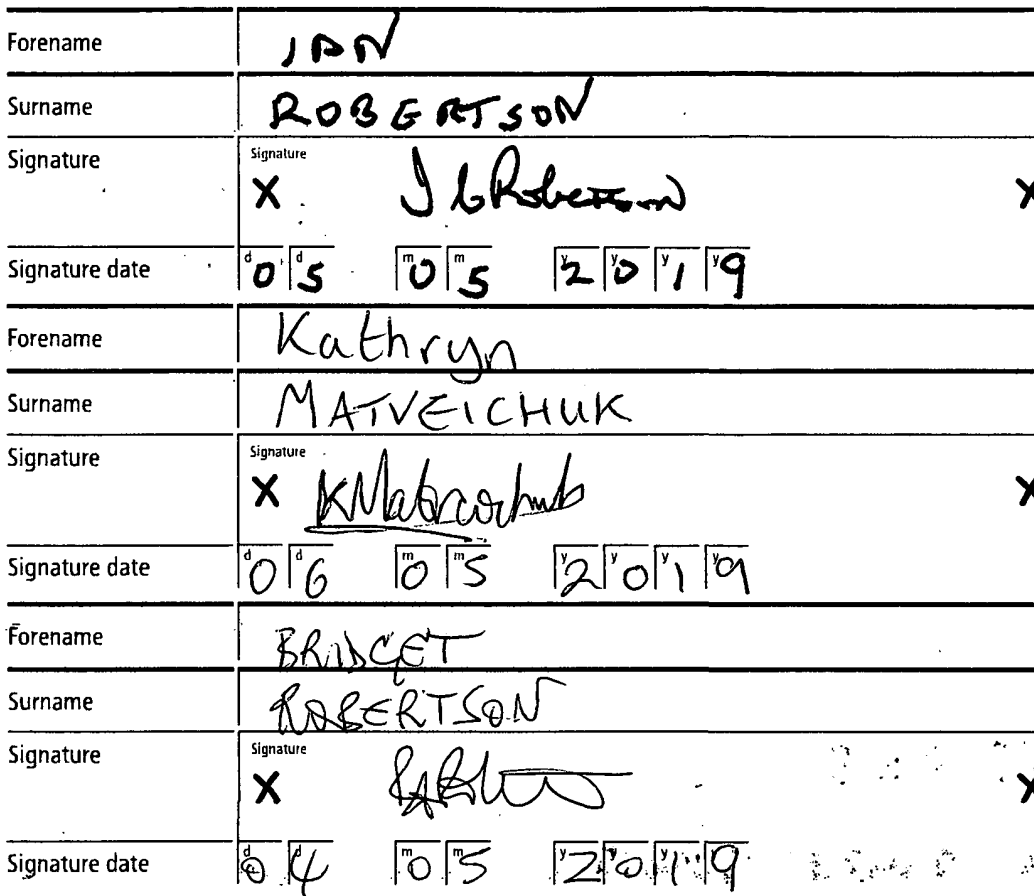 Forename IAN
Surname ROBERTSON
Signature Signature X J G Robertson X
Signature date d 0 d 5 m 0 m 5 y 2 y 0 y 1 y 9
Forename Kathryn
Surname MATVEICHUK
Signature Signature X KMatveichuk X
Signature date d 0 d 6 m 0 m 5 y 2 y 0 y 1 y 9
Forename BRIDGET
Surname ROBERTSON
Signature Signature X X
Signature date d 0 d 4 m 0 m 5 y 2 y 0 y 1 y 9